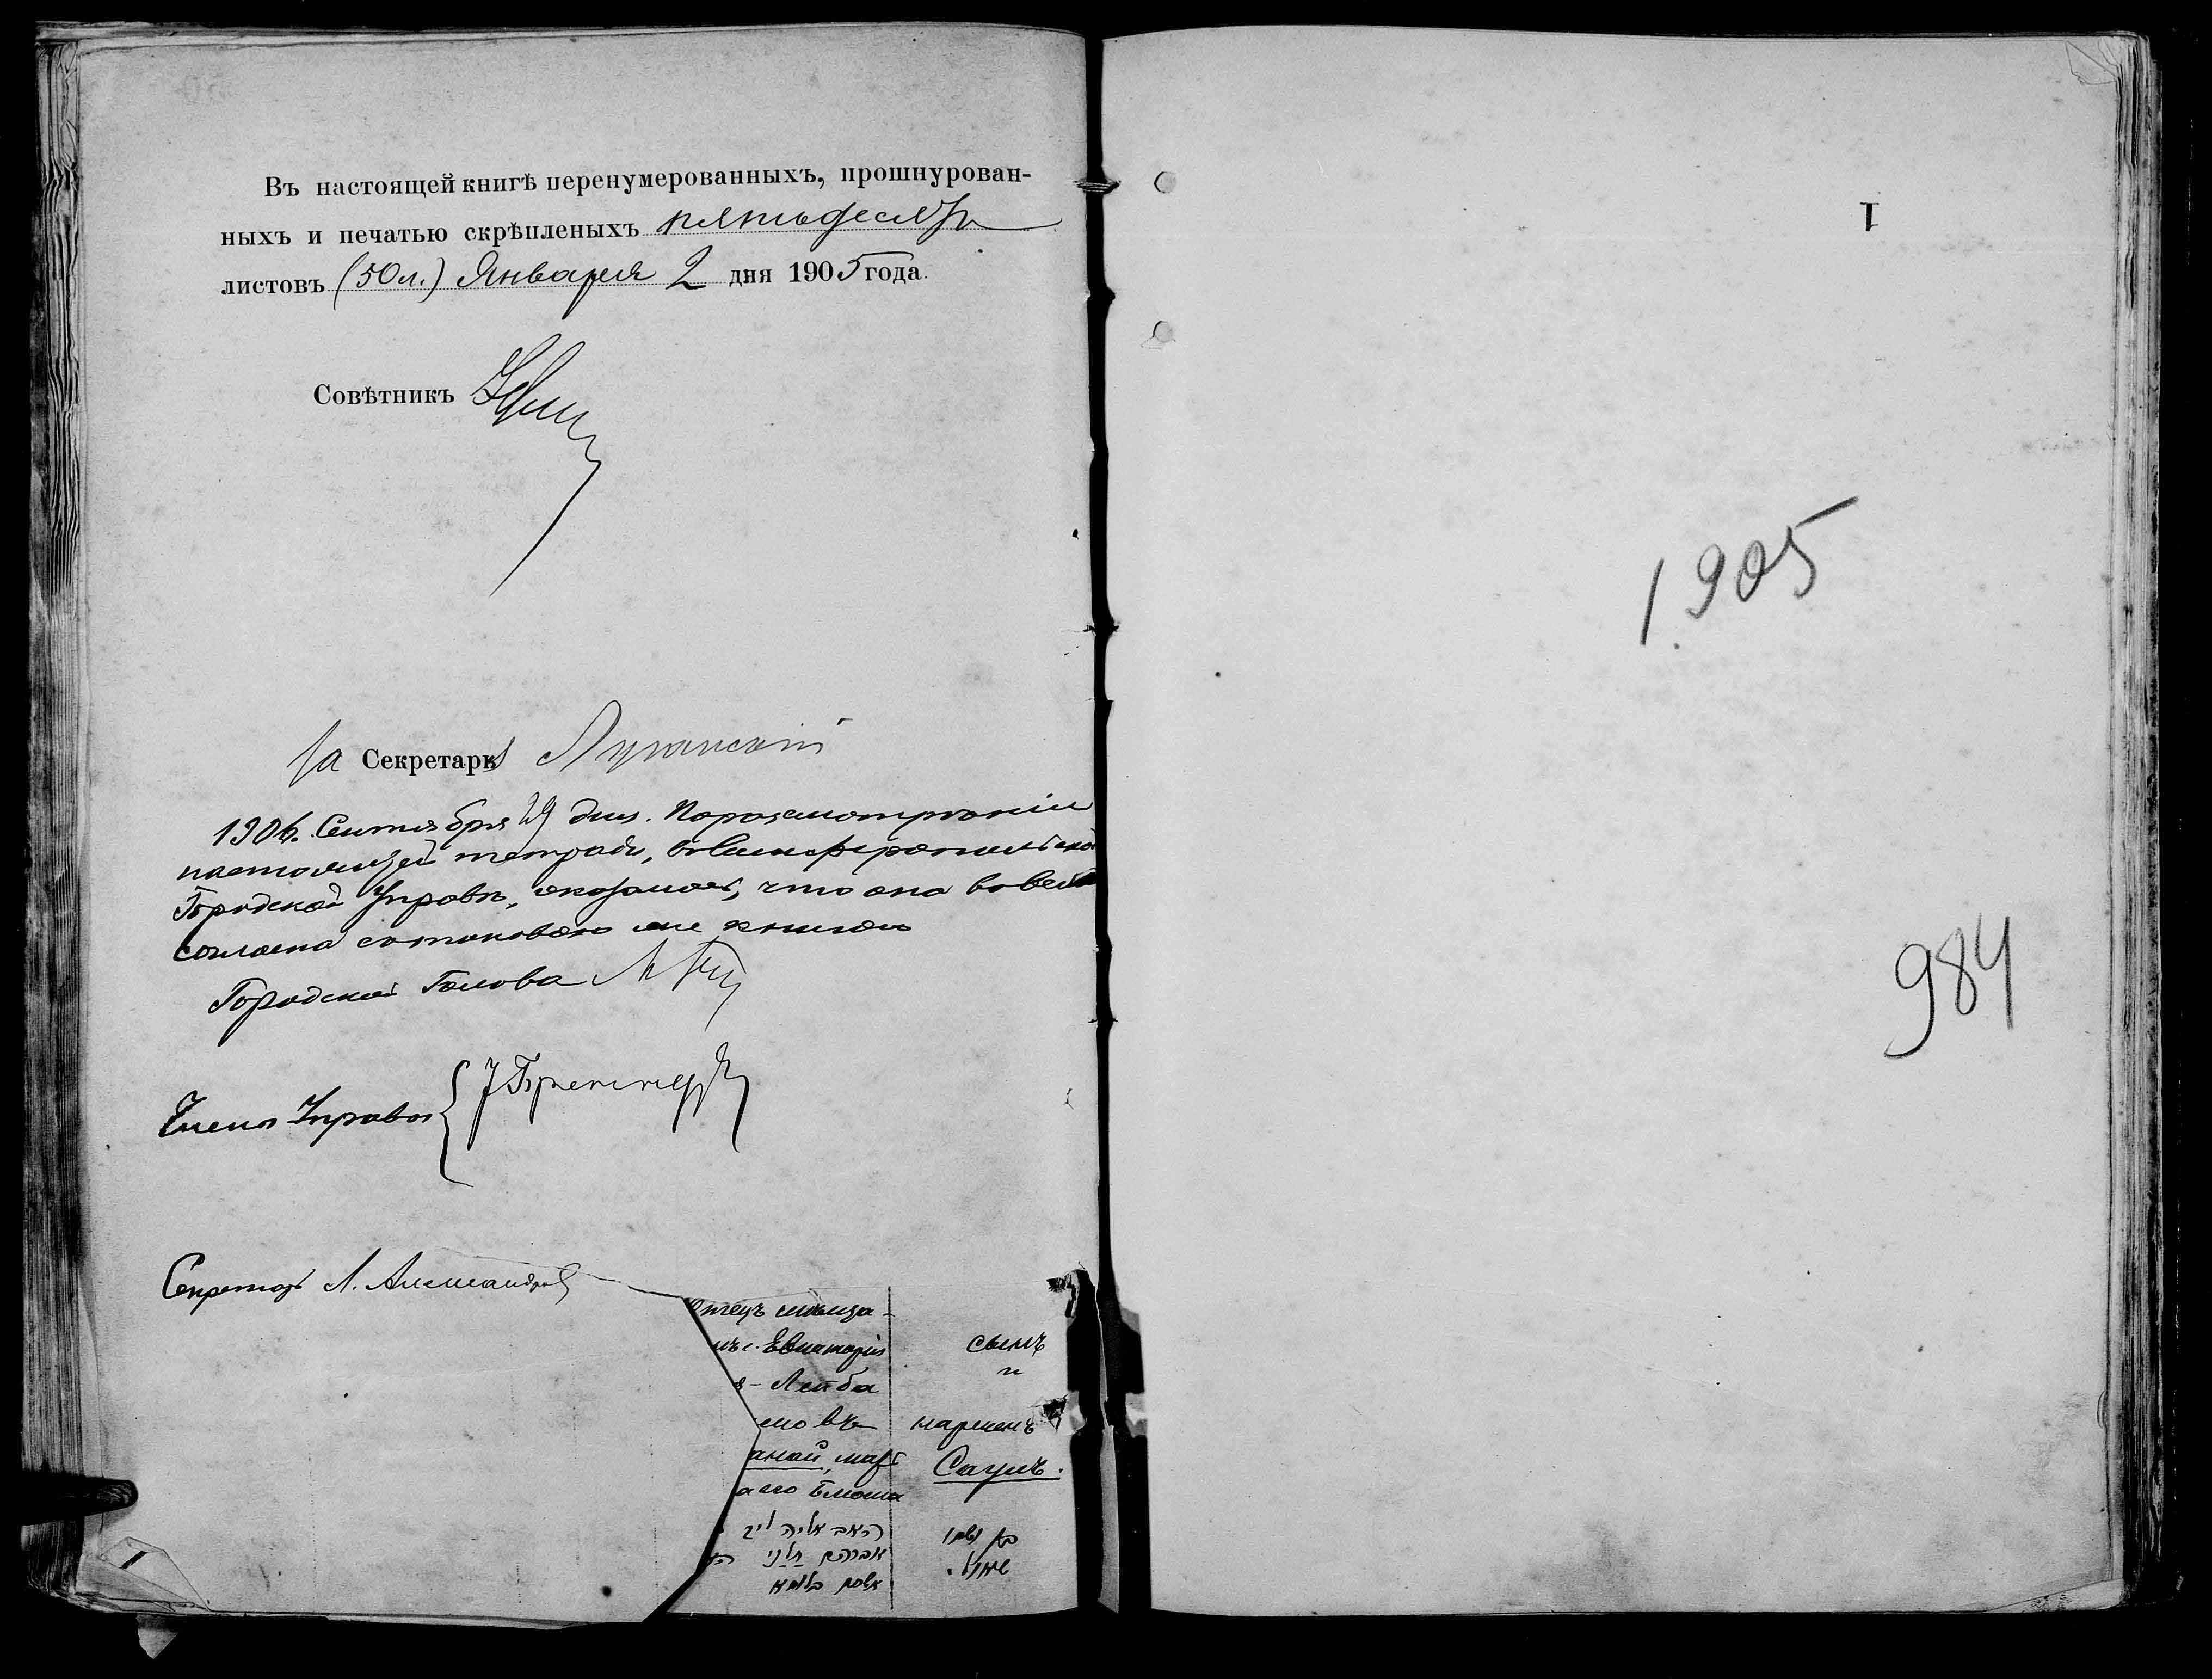 Въ настоящей книгѣ перенумерованныхъ, прошнурован-
ныхъ и печатью скрѣпленыхъ пятьдесятъ
листовъ (50 л.) Января 2 дня 1905 года.
Совѣтникъ
За Секретаря Луганскій
1906. Сентября 29 дня. По разсмотрѣніи
настоящей тетради, въ Симферопольской
Городской Управѣ, оказалось, что она во всемъ
согласна съ таковою же книгою
Городской Голова
Члены Управы
Секретарь Л. Александров
Отецъ мѣща-
нъ г. Евпаторіи
- Лейба
мовъ
анай, мать
а его Блюма
האב אליה ליב
אברהם
אשתו בלומא
сынъ
и
нареченъ
Саулъ.
בן ושמו
שאול.
1
1
1905
984